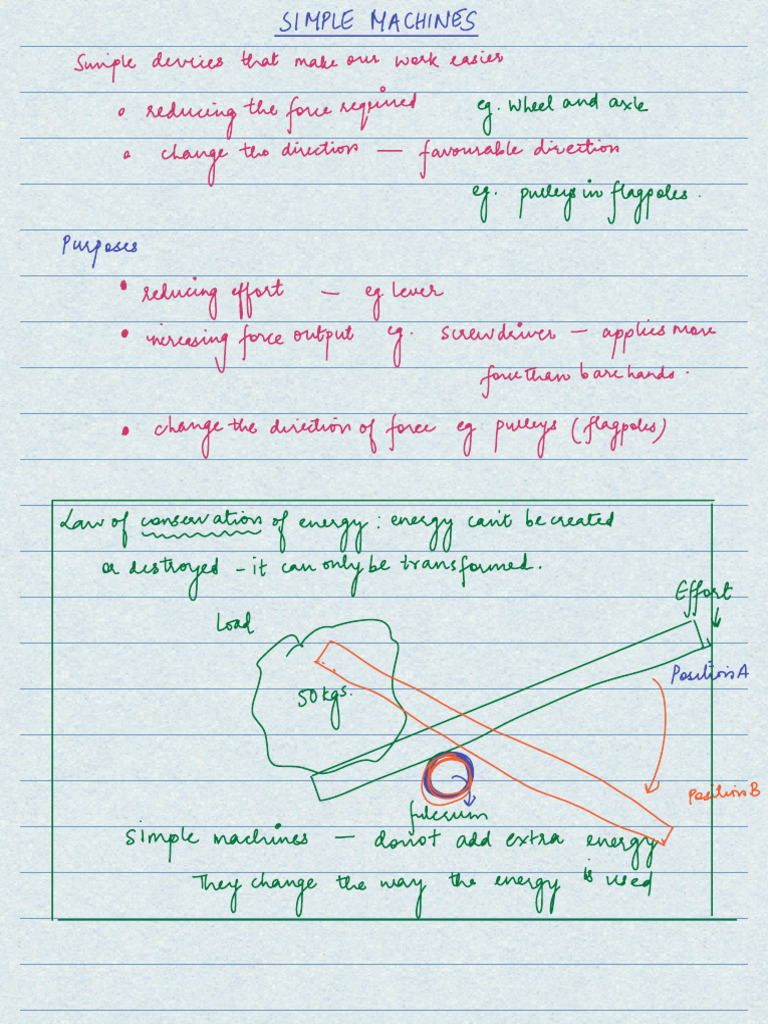 SIMPLE MACHINES
Simple devices that make our work easier
reducing the force required eg. wheel and axle
change the direction — favourable direction
eg. pulleys in flagpoles.
Purposes
• reducing effort — eg lever
• increasing force output eg. screwdriver — applies more
force than bare hands.
• change the direction of force eg pulleys (flagpoles)
Law of conservation of energy: energy can't be created
or destroyed - it can only be transformed.
Effort
Load
Position A
50 kgs.
Position B
fulcrum
Simple machines — donot add extra energy
They change the way the energy is used